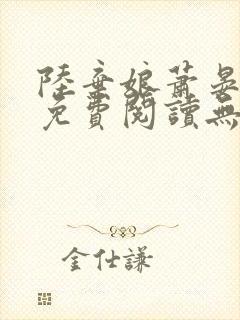 陸棄娘蕭晏
免費閱讀無
金仕謙